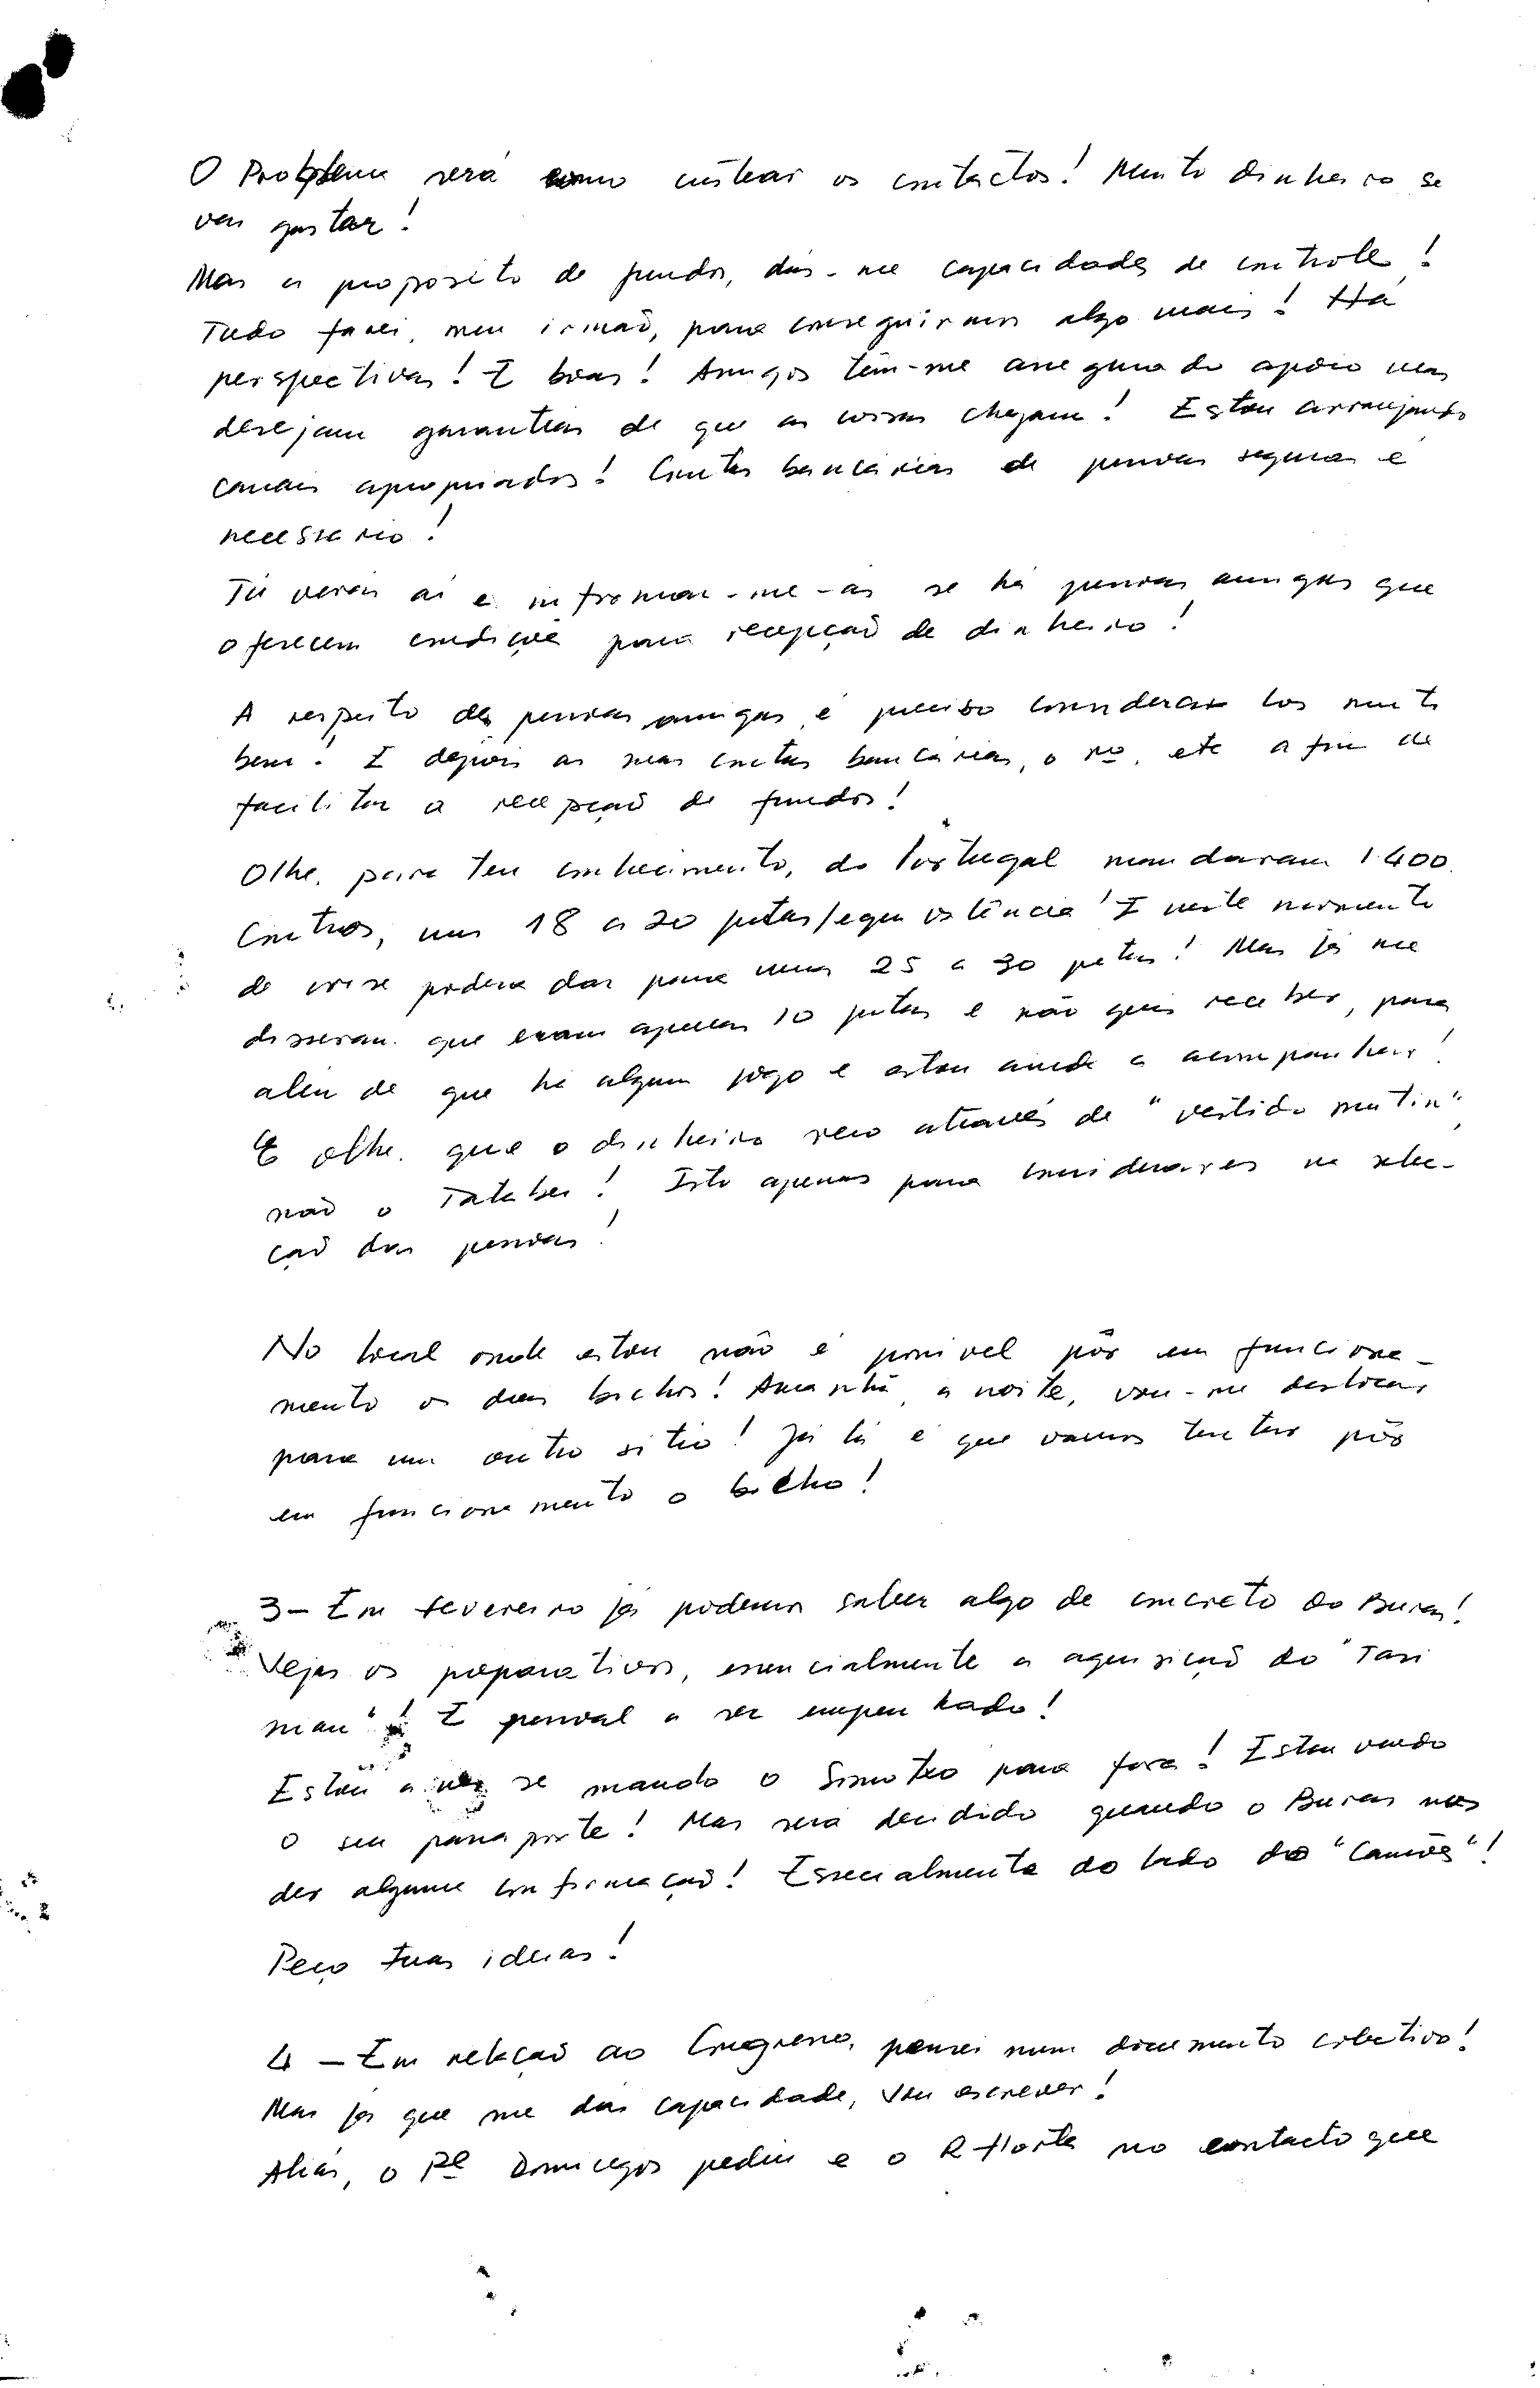 O Problema será como custear os contactos! Muito dinheiro se
vai gastar!
Mas a proposito de fundos, dás-me capacidades de controle!
Tudo farei, meu irmão, para conseguirmos algo mais! Há
perspectivas! E boas! Amigos têm-me assegurado apoio mas
desejam garantias de que as coisas chegam! Estou arranjando
canais apropriados! Contas bancárias de pessoas seguras é
necessário!
Tu verás aí e informar-me-ás se há pessoas amigas que
oferecem condições para recepção de dinheiro!
A respeito das pessoas amigas, é preciso considerar-los muito
bem! E depois as suas contas bancárias, o nº, etc a fim de
facilitar a recepção de fundos!
Olhe, para teu conhecimento, de Portugal mandaram 1.400
Contos, uns 18 a 20 jutas/equivalência! E neste momento
de crise poderia dar para umas 25 a 30 jutas! Mas já me
disseram que eram apenas 10 jutas e não quis receber, para
além de que há algum jogo e estou ainda a acompanhar!
E olhe, que o dinheiro veio através de "vestido mutin",
não o Talaber! Isto apenas para considerares na selec-
ção das pessoas!
No local onde estou não é possivel pôr em funciona-
mento os dois bichos! Amanhã, a noite, vou-me deslocar
para um outro sitio! Já lá é que vamos tentar pôr
em funcionamento o bicho!
3- Em fevereiro já podemos saber algo de concreto do Buras!
Vejas os preparativos, essencialmente a aquisição do "Tasi
man"! E pessoal a ser empenhado!
Estou a ver se mando o Simoteo para fora! Estou vendo
o seu passaporte! Mas será decidido quando o Buras nos
der alguma confirmação! Especialmente do lado do "Camões"!
Peço tuas ideias!
4 - Em relação ao Congresso, pensei num documento colectivo!
Mas já que me dás capacidade, vou escrever!
Aliás, o Pe Domingos pediu e o R Horta no contacto que